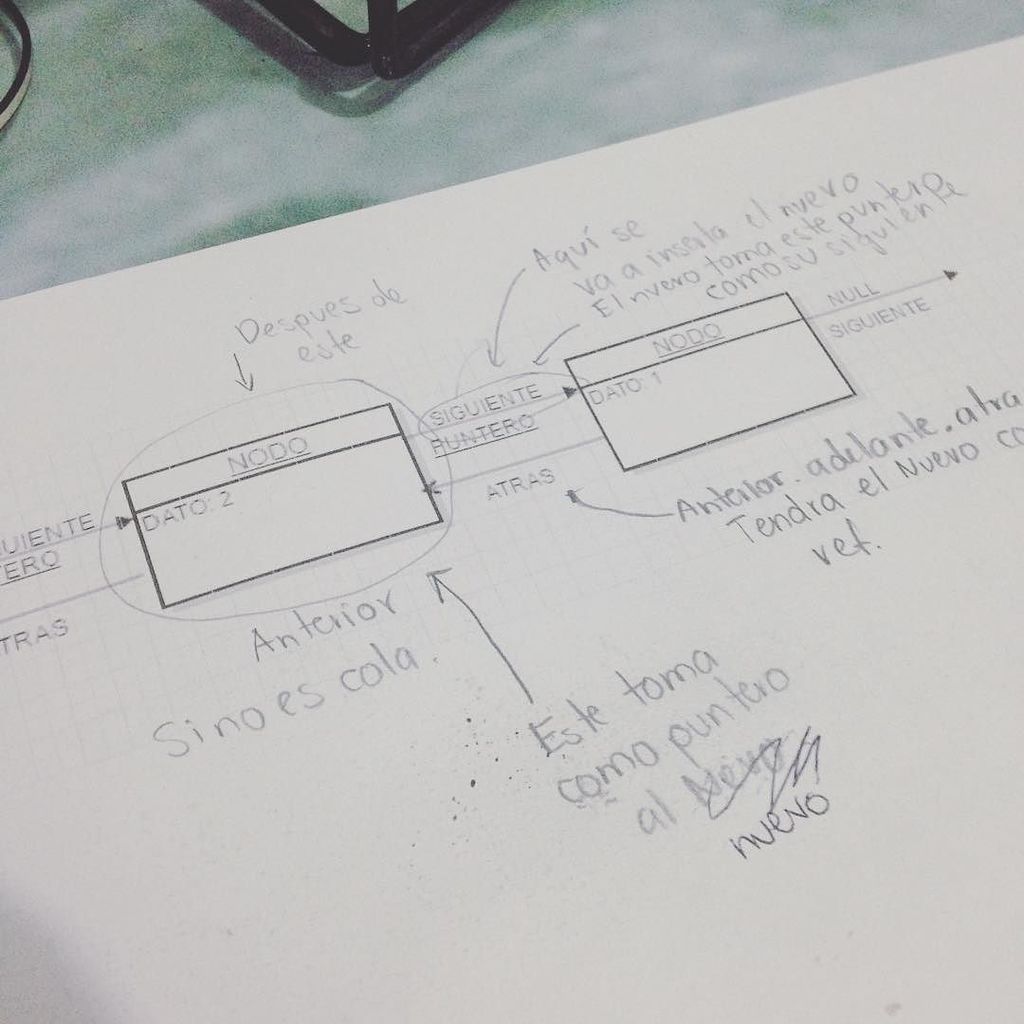 Aquí se
va a inserta el nuevo
El nuevo toma este puntero
como su siguiente
Despues de
este
NULL
SIGUIENTE
NODO
DATO: 1
SIGUIENTE
PUNTERO
ATRAS
NODO
DATO: 2
UIENTE
TERO
TRAS
Anterior.adelante.atra
Tendra el Nuevo co
ref.
Anterior
Sino es cola.
Este toma
como puntero
al
nuevo